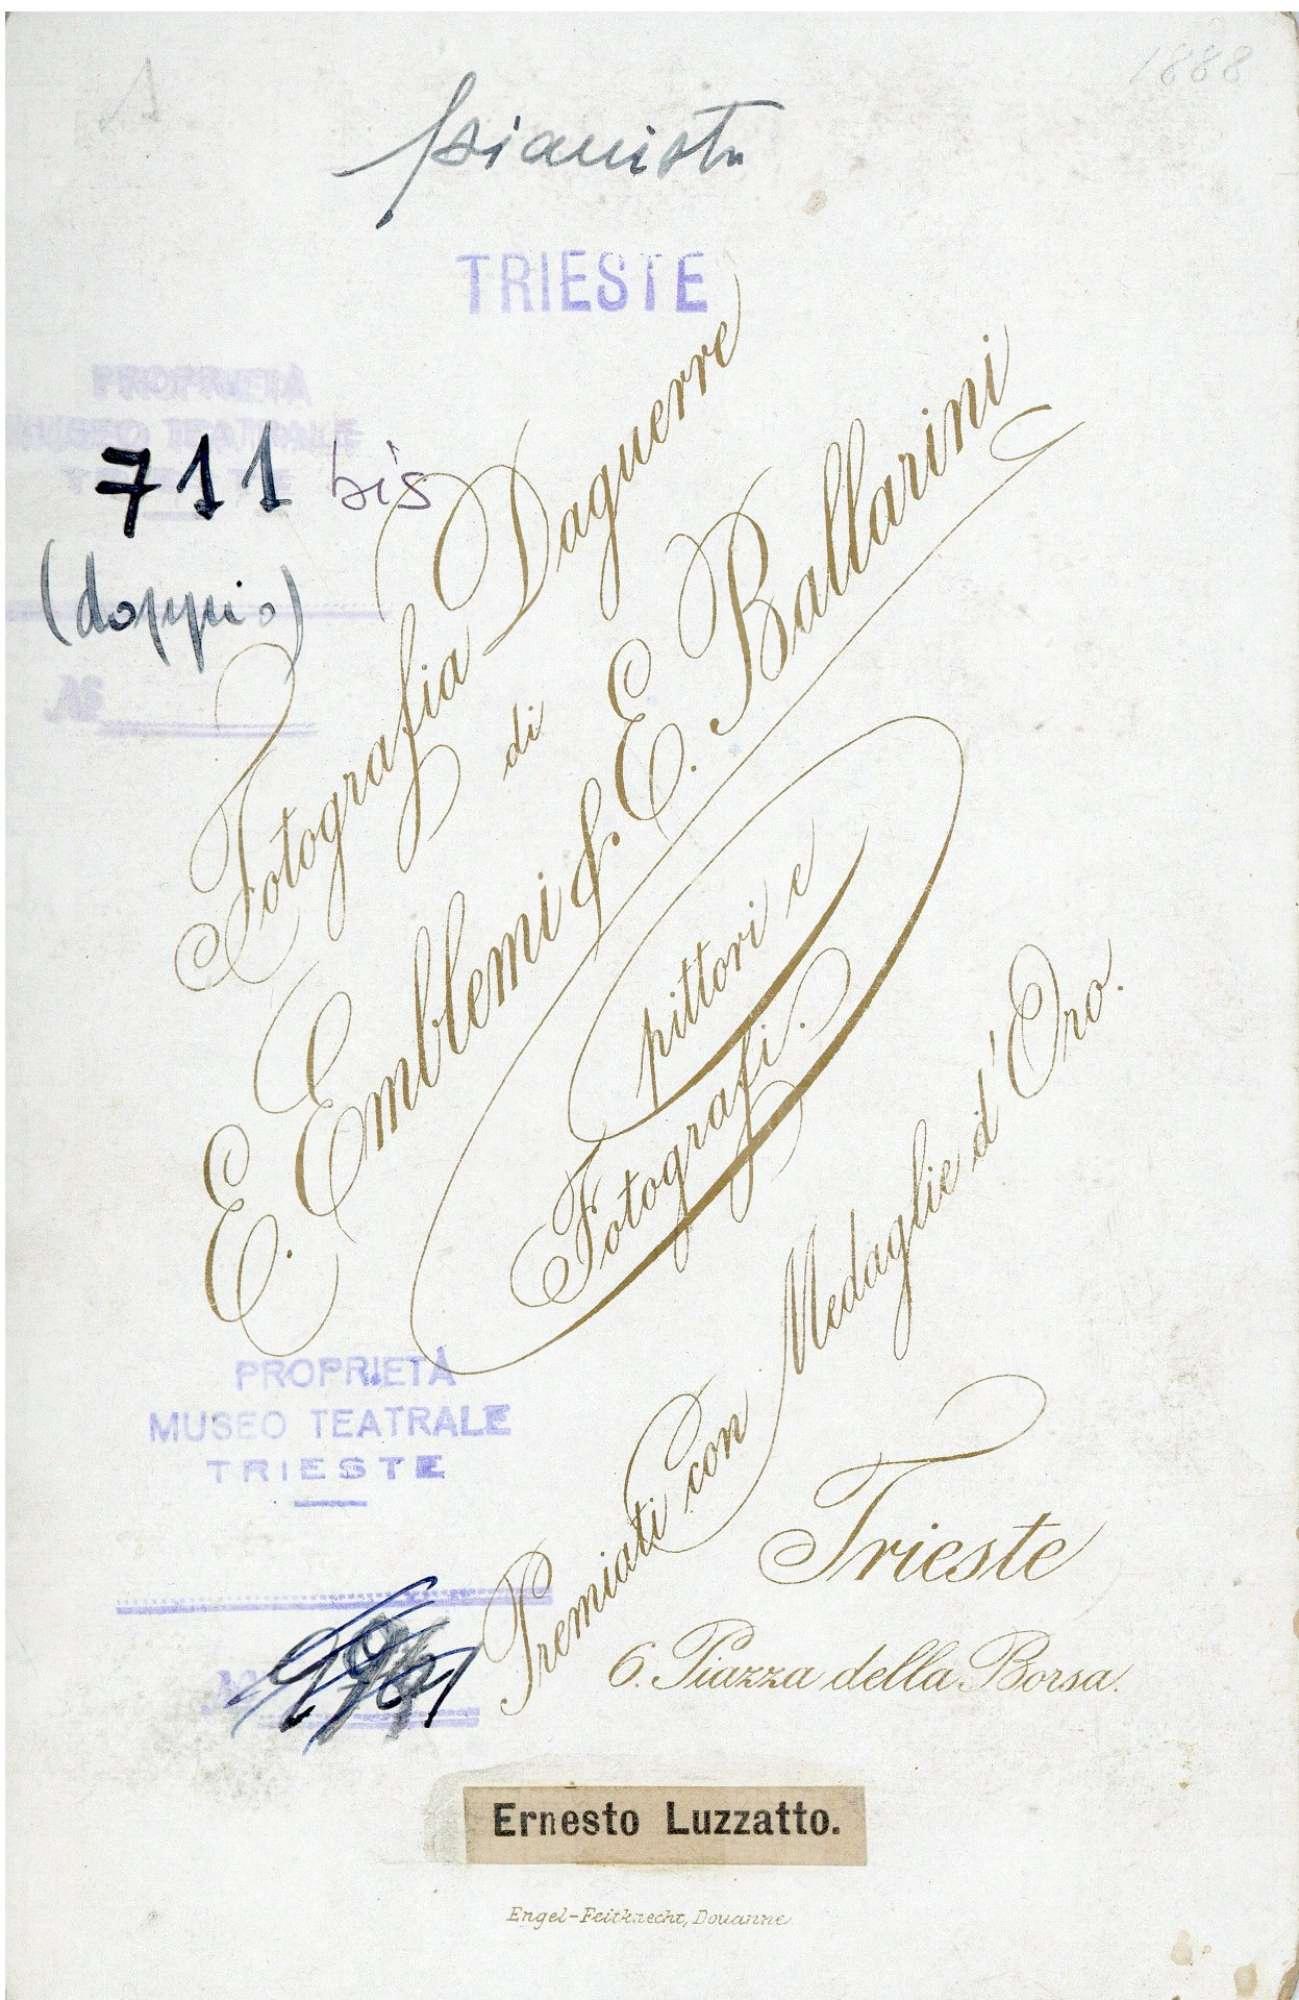 1888
pianista
TRIESTE
PROPRIETÀ
MUSEO TEATRALE
TRIESTE
711 bis
(doppio)
№
Fotografia Daguerre
di
E. Emblemi & E. Ballarini
pittori e
Fotografi.
Premiati con Medaglie d'Oro.
PROPRIETÀ
MUSEO TEATRALE
TRIESTE
Trieste
6. Piazza della Borsa.
Ernesto Luzzatto.
Engel-Feitknecht, Douanne